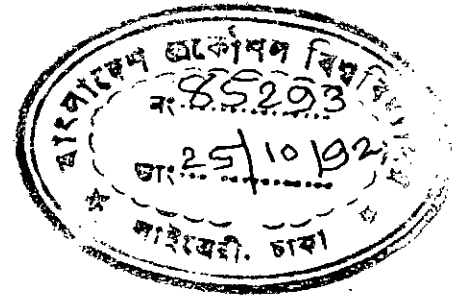 বাংলাদেশ প্রকৌশল বিশ্ববিদ্যালয়
নং 85293
তাং 25/10/92
লাইব্রেরী. ঢাকা